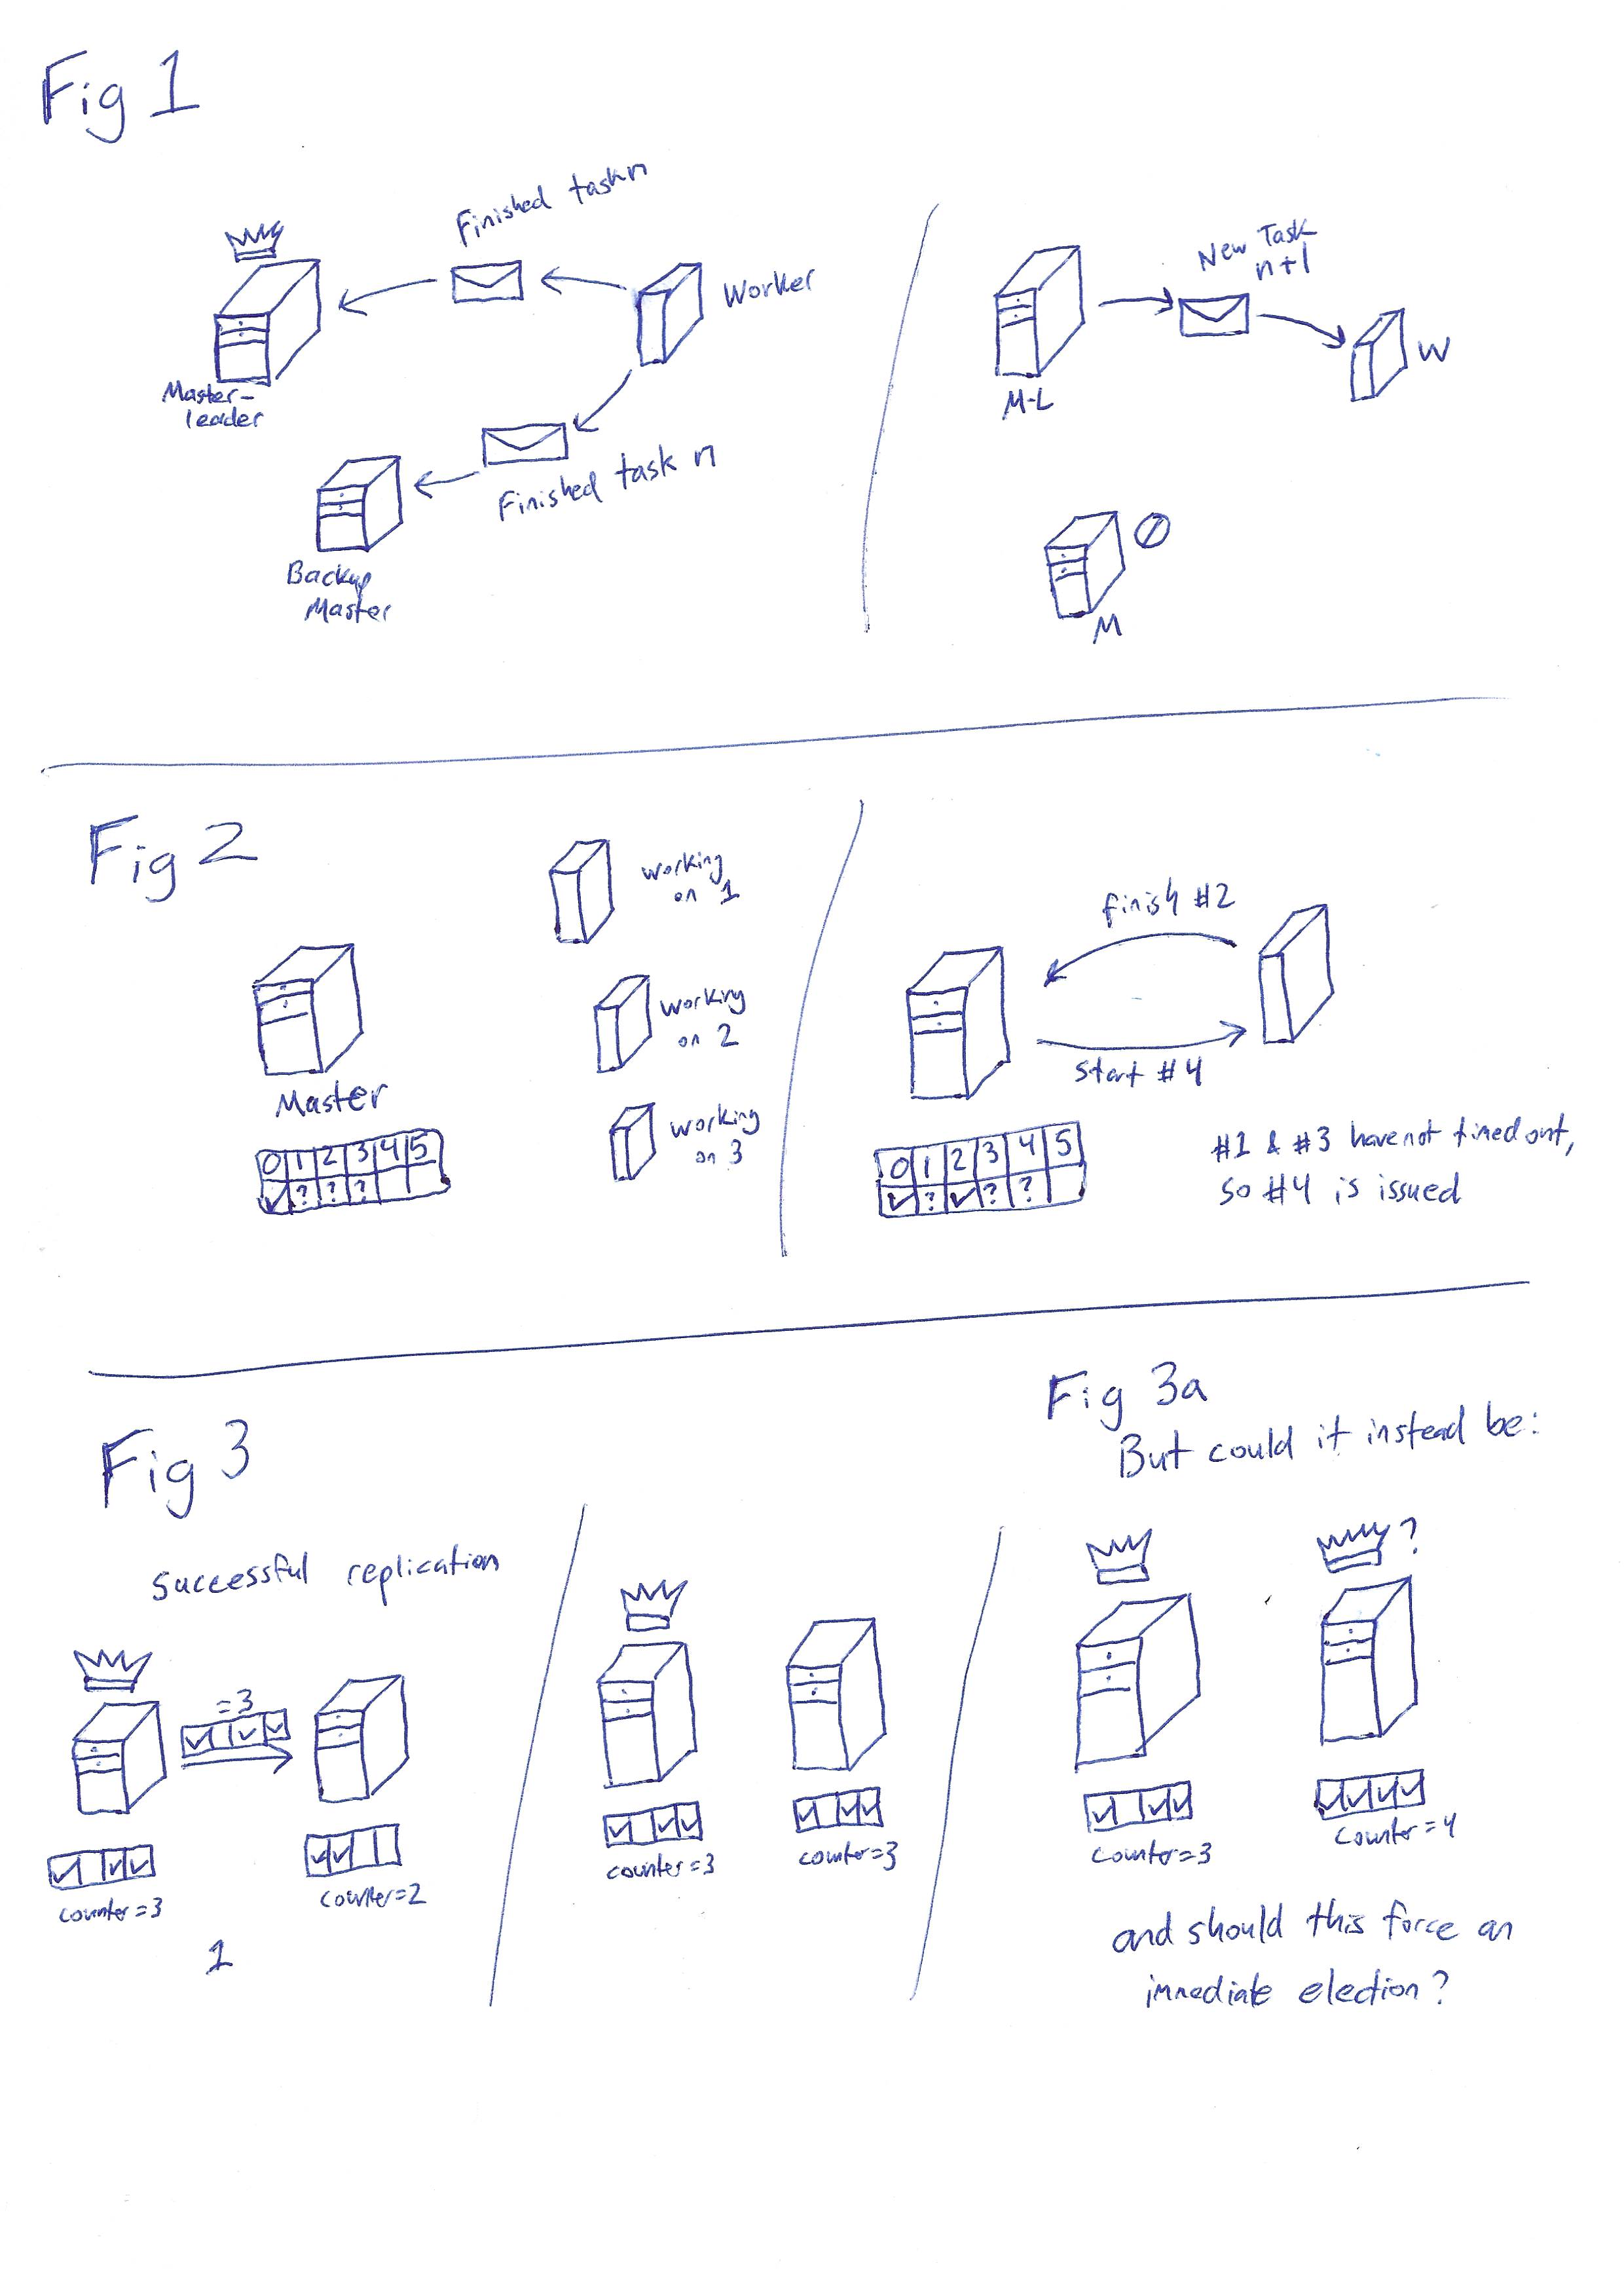 Fig 1
Finished task n
Worker
Master-
leader
Finished task n
Backup
Master
New Task
n+1
M-L
W
M
Fig 2
working
on 1
working
on 2
working
on 3
Master
0 1 2 3 4 5
✓ ? ? ?
finish #2
start #4
0 1 2 3 4 5
✓ ? ✓ ? ?
#1 & #3 have not timed out,
so #4 is issued
Fig 3
successful replication
=3
counter=3
counter=2
1
counter=3
counter=3
Fig 3a
But could it instead be:
?
counter=3
counter=4
and should this force an
immediate election?